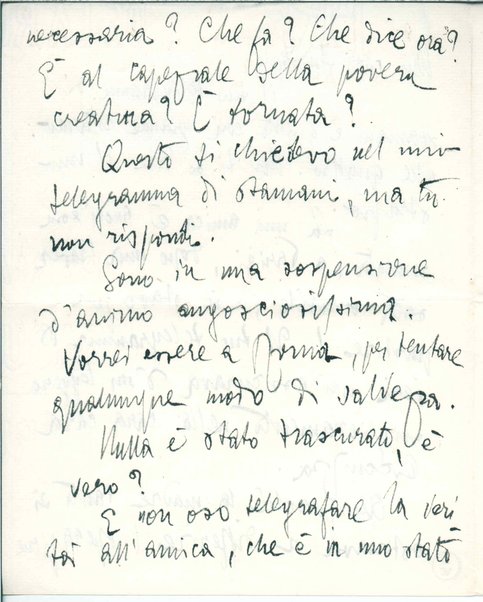 necessaria? Che fa? Che dice ora?
È al capezzale della povera
creatura? È tornata?
Questo ti chiedevo nel mio
telegramma di stamani, ma tu
non rispondi.
Sono in una sospensione
d'animo angosciosissima.
Vorrei essere a Roma, per tentare
qualunque modo di salvezza.
Nulla è stato trascurato, è
vero?
E non oso telegrafare la veri
tà all'amica, che è in uno stato